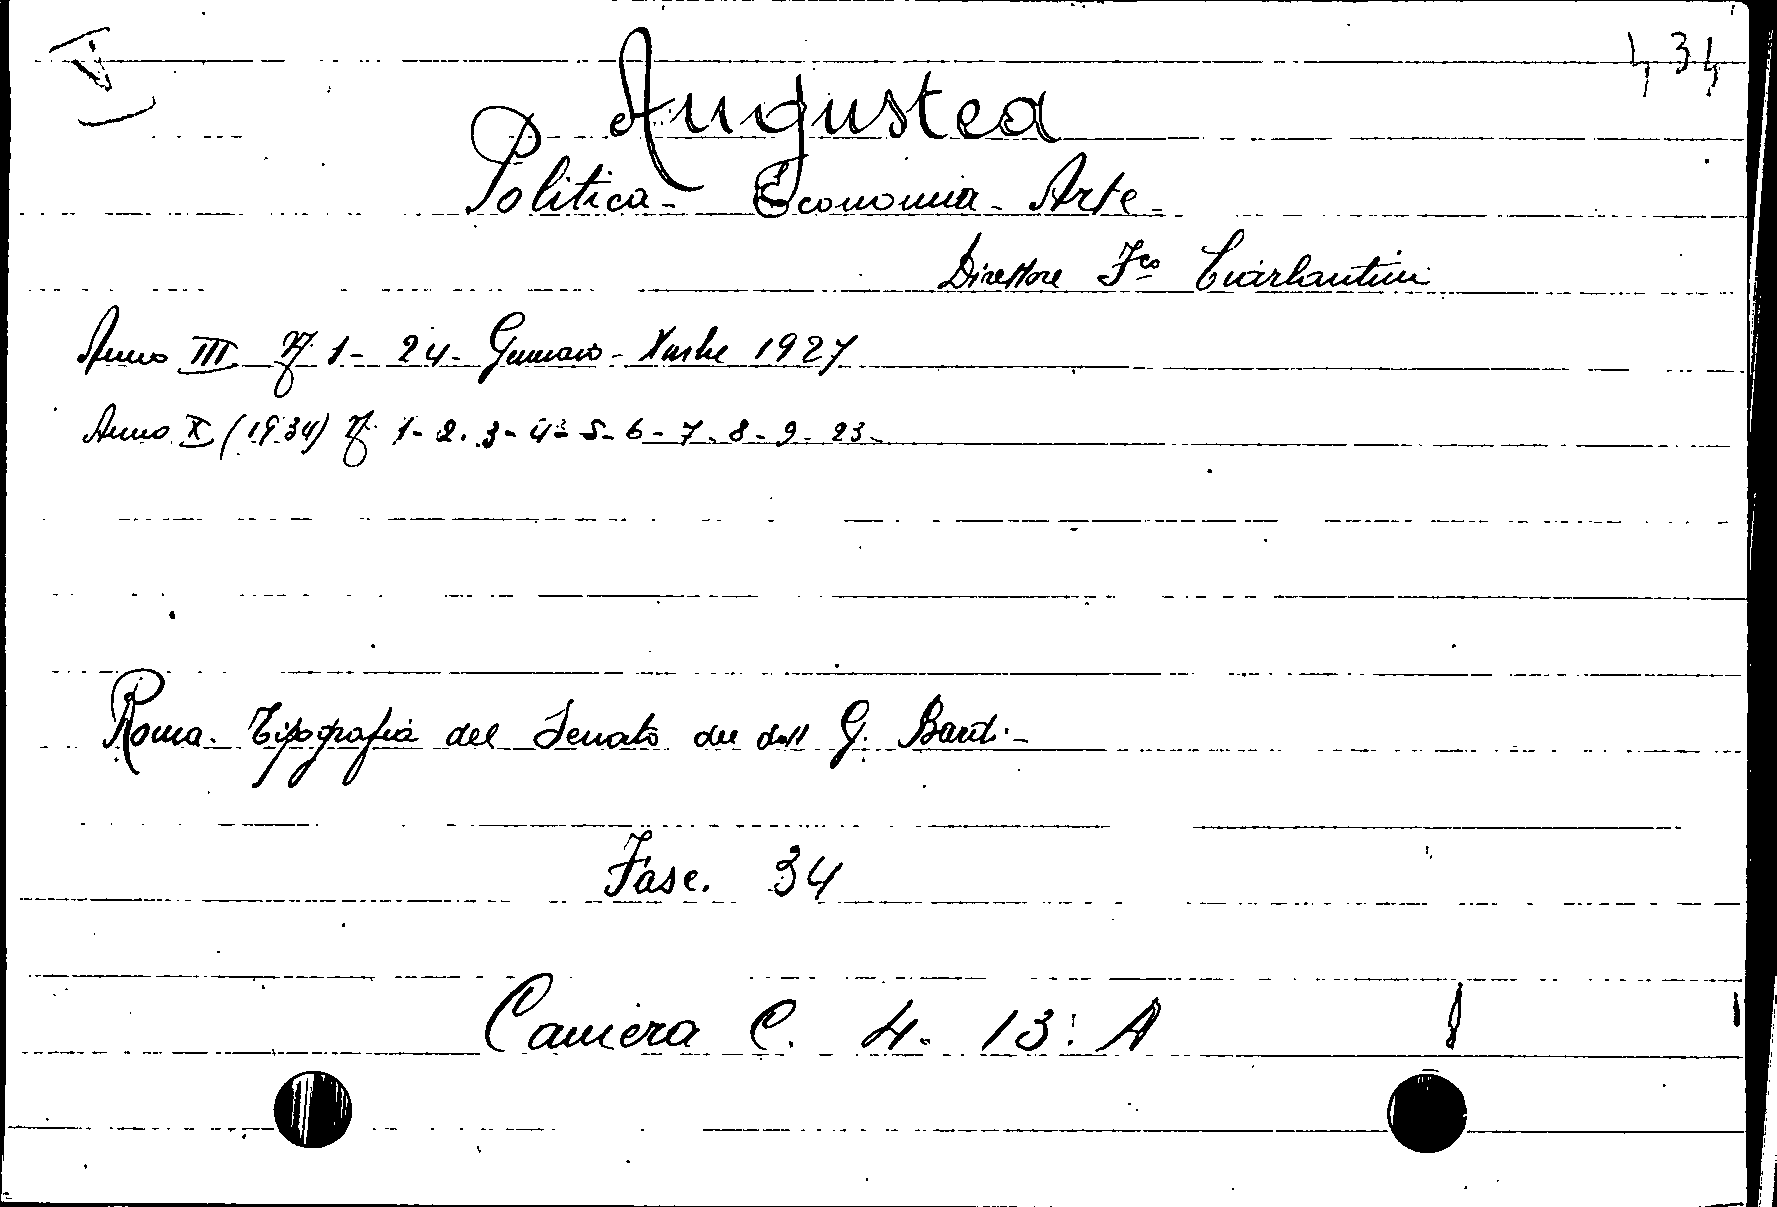 434
Augustea
Politica - Economia - Arte -
Direttore Fco Ciarlantini
Anno III N. 1 - 24 - Gennaio - Xmbre 1927
Anno X (1934) N. 1 - 2. 3 - 4 - 5 - 6 - 7. 8 - 9 - 23 -
Roma - Tipografia del Senato del dott G. Bardi -
Fasc. 34
Camera C. 4. 13. A